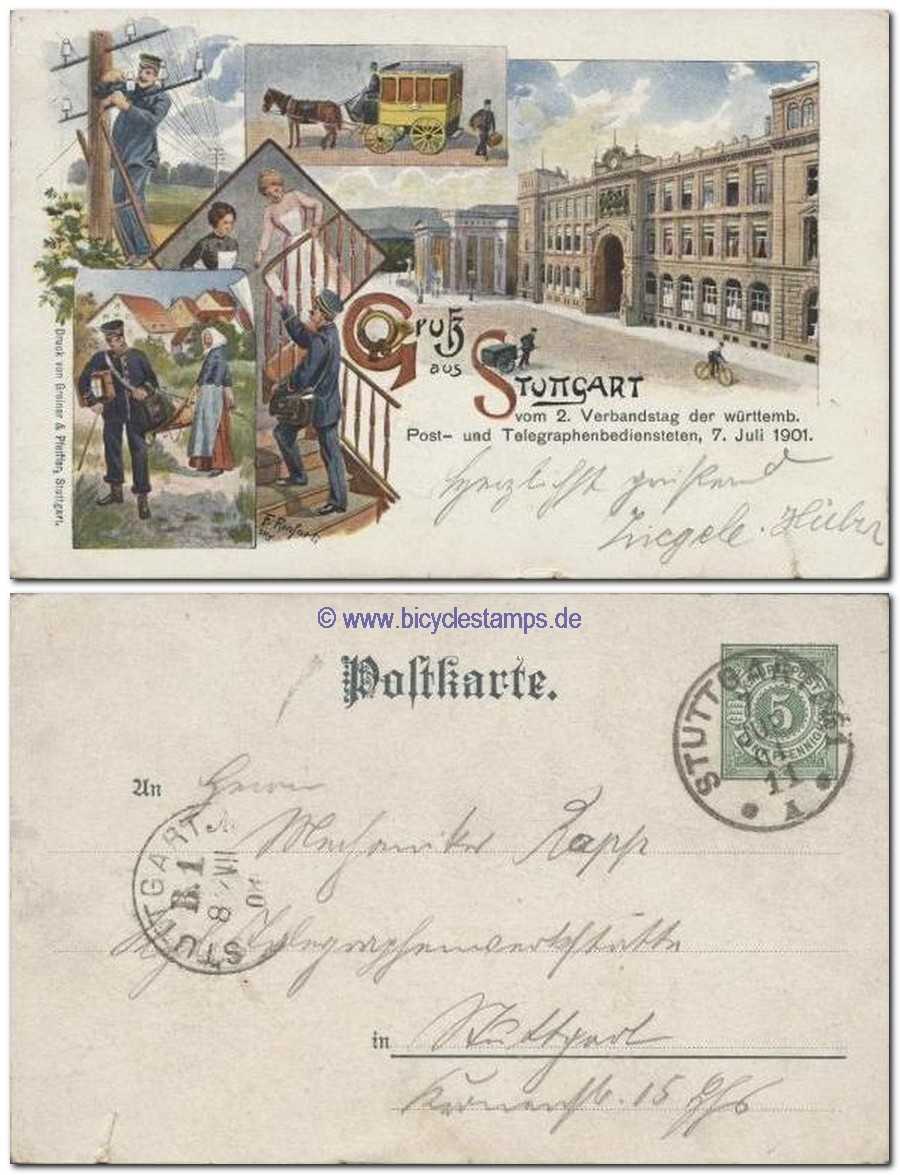 Gruß
aus
Stuttgart
vom 2. Verbandstag der württemb.
Post- und Telegraphenbediensteten, 7. Juli 1901.
Druck von Greiner & Pfeiffer, Stuttgart.
Herzlichst grüßend
Ziegele. Huber
© www.bicyclestamps.de
Postkarte.
STUTTGART
5
PFENNIG
11
A
An Herrn
Mechaniker Rapp
STUTTGART
B. 1
8 VII
Kgl. Telegraphenwerkstätte
in Stuttgart
15